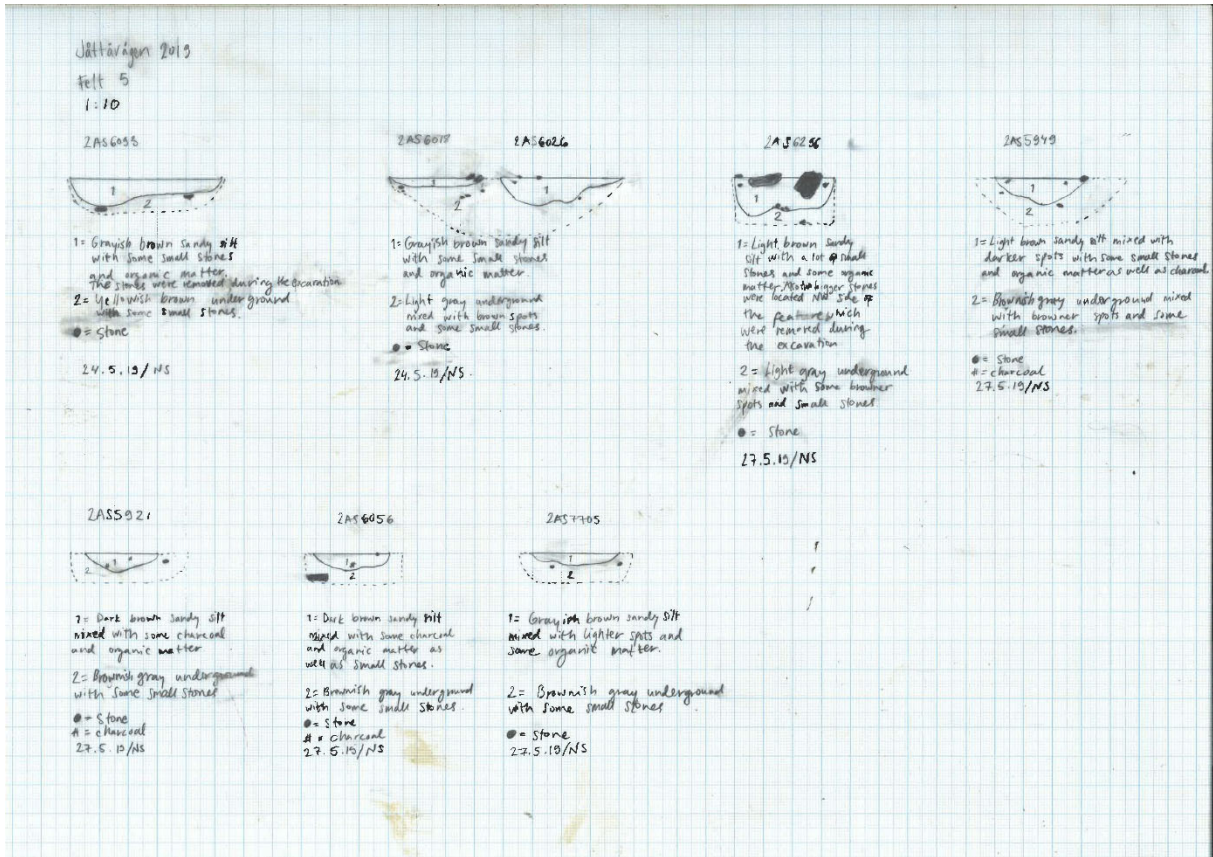 Jåttåvågen 2019
Felt 5
1:10
2AS6093
1
2
1= Grayish brown sandy silt
with some small stones
and organic matter.
The stones were removed during the excavation
2= Yellowish brown underground
with some small stones.
= Stone
24.5.19/NS
2AS6018
2AS6026
1
1
2
1= Grayish brown sandy silt
with some small stones
and organic matter.
2= Light gray underground
mixed with brown spots
and some small stones.
= Stone
24.5.19/NS.
2AS6256
1
2
1= Light brown sandy
silt with a lot of small
stones and some organic
matter. Also bigger stones
were located side of
the feature which
were removed during
the excavation
2 = Light gray underground
mixed with some browner
spots and small stones
= Stone
27.5.19/NS
2AS5949
1
2
1= Light brown sandy silt mixed with
darker spots with some small stones
and organic matter as well as charcoal
2= Brownish gray underground mixed
with browner spots and some
small stones.
= Stone
# = charcoal
27.5.19/NS
2AS5921
1
2
1= Dark brown sandy silt
mixed with some charcoal
and organic matter
2= Brownish gray underground
with some small stones
= Stone
# = charcoal
27.5.19/NS
2AS6056
1
2
1= Dark brown sandy silt
mixed with some charcoal
and organic matter as
well as small stones.
2= Brownish gray underground
with some small stones.
= Stone
# = charcoal
27.5.19/NS
2AS7705
1
2
1= Grayish brown sandy silt
mixed with lighter spots and
some organic matter.
2= Brownish gray underground
with some small stones
= Stone
27.5.19/NS